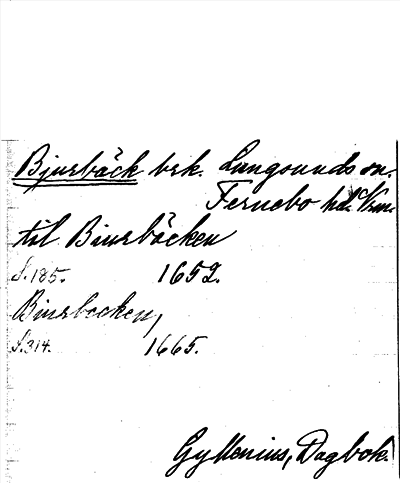 Bjursbäck brk. Lungsunds sn.
Fernebo hd. Vrm.
til Biursbäcken
S.185. 1652.
Biursbacken,
S.314. 1665.
Gyllenius, Dagbok.